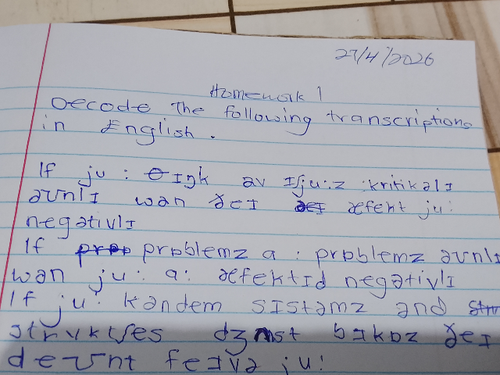 27/4/2026
Homework 1
Decode The following transcriptions
in English.
If ju: θɪŋk av ɪʃju:z kritikəlɪ
əʊnlɪ wan ðeɪ æfekt ju:
negətivlɪ
If prɒblemz a: prɒblemz əʊnlɪ
wan ju: a: æfektɪd negətivlɪ
If ju: kandem sɪstəmz and
strʌktʃes dʒʌst bɪkɒz ðeɪ
deʊnt feɪvə ju: